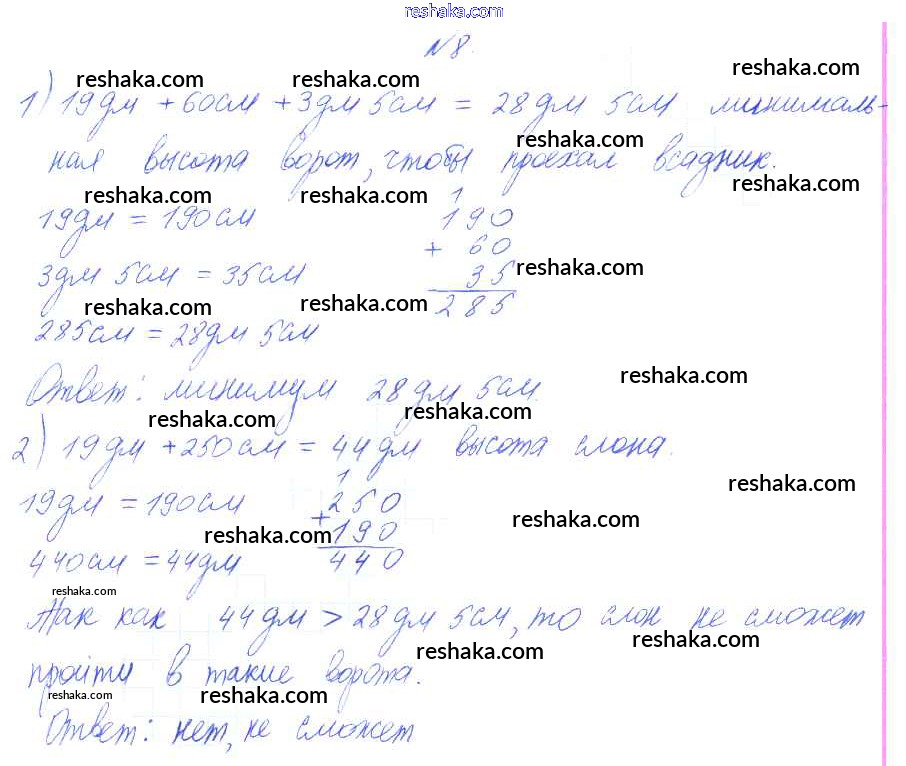 reshaka.com
№8.
reshaka.com reshaka.com reshaka.com
1) 19дм + 60см + 3дм 5см = 28дм 5см минималь-
reshaka.com
ная высота ворот, чтобы проехал всадник.
reshaka.com reshaka.com reshaka.com
19дм = 190см
1
190
+ 60
35
285
3дм 5см = 35см
reshaka.com
reshaka.com reshaka.com
285см = 28дм 5см
reshaka.com
Ответ: минимум 28дм 5см.
reshaka.com reshaka.com
2) 19дм + 250см = 44дм высота слона.
reshaka.com
19дм = 190см
1
250
+ 190
440
reshaka.com reshaka.com
440см = 44дм
reshaka.com
Так как 44дм > 28дм 5см, то слон не сможет
reshaka.com reshaka.com
пройти в такие ворота.
reshaka.com reshaka.com
Ответ: нет, не сможет